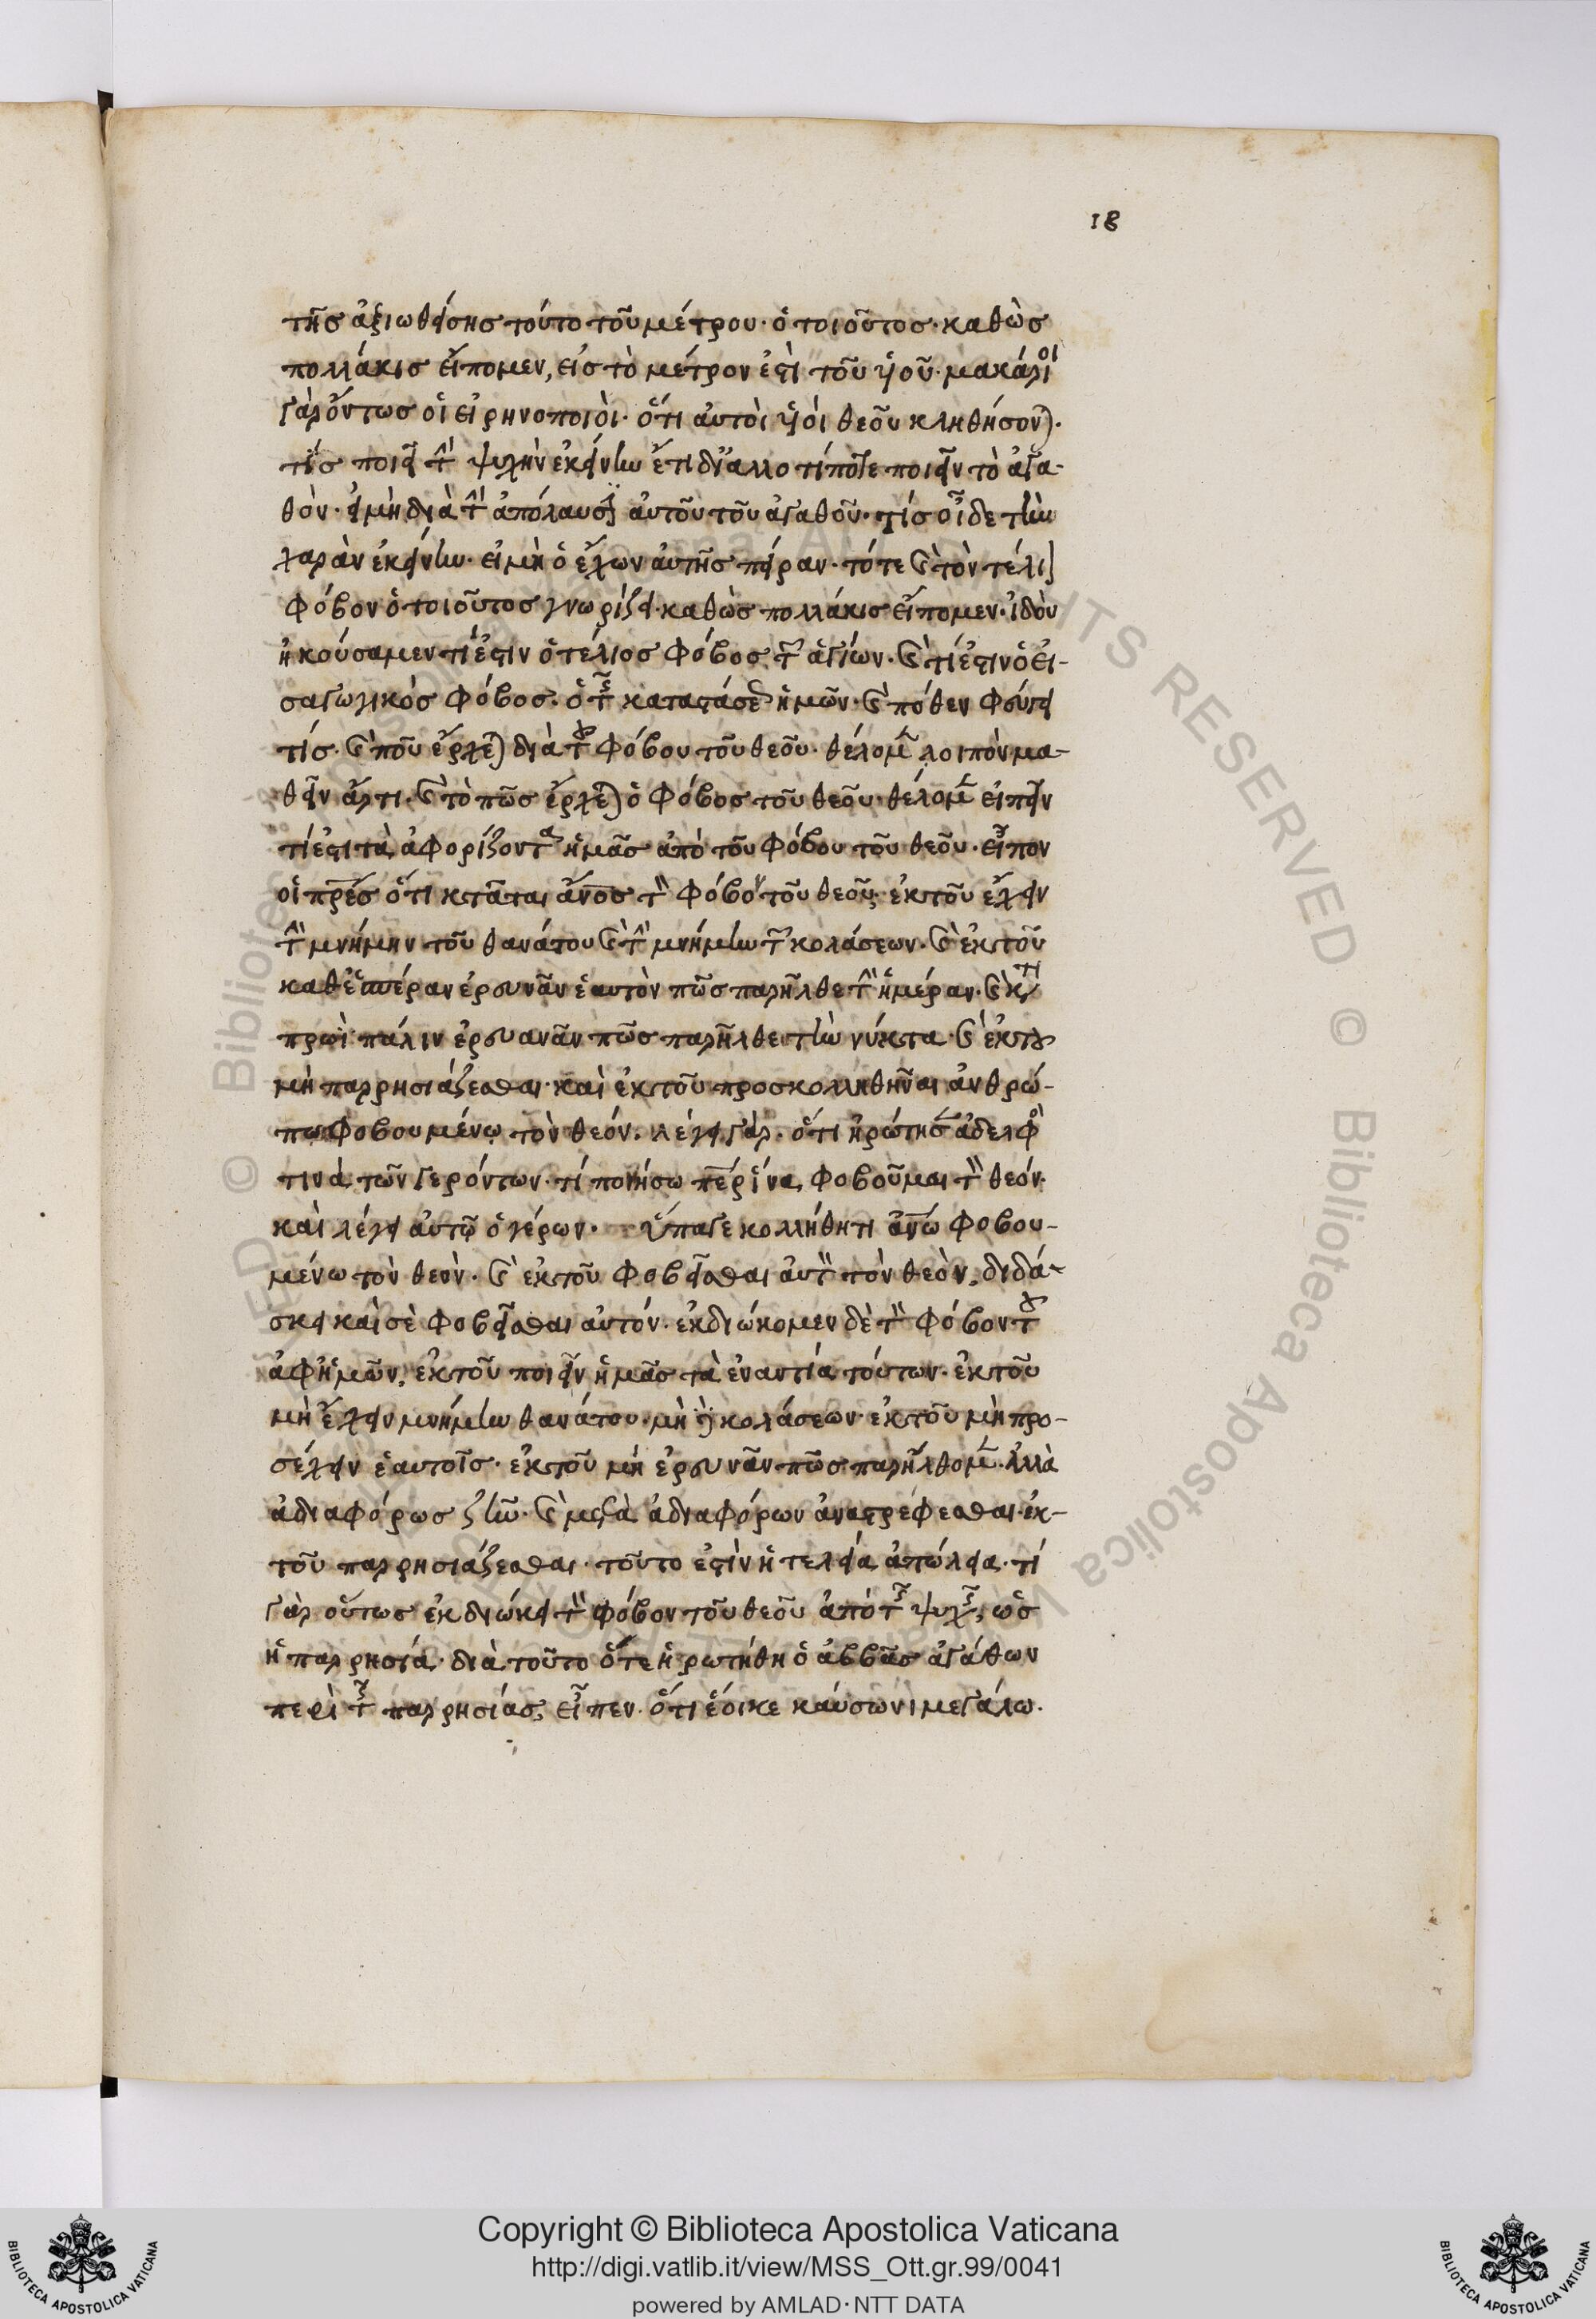 18
τῆς ἀξιωθείσης τούτο τοῦ μέτρου· ὁ τοιοῦτος· καθὼς
πολλάκις εἴπομεν, εἰς τὸ μέτρον ἐστὶ τοῦ υἱοῦ· μακάριοι
γὰρ ὄντως οἱ εἰρηνοποιοὶ· ὅτι αὐτοὶ υἱοὶ θεοῦ κληθήσονται.
τίς ποιεῖ τὴν ψυχὴν ἐκείνην ἔτι δι' ἄλλο τίποτε ποιεῖν τὸ ἀγα-
θὸν· εἰ μὴ διὰ τὴν ἀπόλαυσιν αὐτοῦ τοῦ ἀγαθοῦ· τίς οἶδε τὴν
χαρὰν ἐκείνην· εἰ μὴ ὁ ἔχων αὐτῆς πεῖραν· τότε καὶ τὸν τέλειον
φόβον ὁ τοιοῦτος γνωρίζει· καθὼς πολλάκις εἴπομεν· ἰδοὺ
ἠκούσαμεν τί ἐστιν ὁ τέλιος φόβος τῶν ἁγίων· καὶ τί ἐστιν ὁ εἰ-
σαγωγικὸς φόβος· ὁ τῆς καταστάσεως ἡμῶν· καὶ πόθεν φεύγει
τίς· καὶ ποῦ ἔρχεται διὰ τοῦ φόβου τοῦ θεοῦ· θέλομεν λοιπὸν μα-
θεῖν ἄρτι· καὶ τὸ πῶς ἔρχεται ὁ φόβος τοῦ θεοῦ· θέλομεν εἰπεῖν
τί ἐστι τὰ ἀφορίζοντα ἡμᾶς ἀπὸ τοῦ φόβου τοῦ θεοῦ· εἶπον
οἱ πρ̅ε̅ς ὅτι κτᾶται ἄν̅ο̅ς τὸν φόβον τοῦ θεοῦ· ἐκ τοῦ ἔχειν
τὴν μνήμην τοῦ θανάτου καὶ τὴν μνήμην τῶν κολάσεων· καὶ ἐκ τοῦ
καθ' ἑσπέραν ἐρευνᾶν ἑαυτὸν πῶς παρῆλθε τὴν ἡμέραν· καὶ κατὰ
πρωῒ πάλιν ἐρευανᾶν πῶς παρῆλθε τὴν νύκτα· καὶ ἐκ τοῦ
μὴ παρρησιάζεσθαι· καὶ ἐκ τοῦ προσκολληθῆναι ἀνθρώ-
πω φοβουμένῳ τὸν θεόν. λέγει γάρ· ὅτι ἠρώτησεν ἀδελφὸς
τινὰ τῶν γερόντων· τί ποιήσω πε̅ρ ἵνα φοβοῦμαι τὸν θεόν·
καὶ λέγει αὐτῷ ὁ γέρων· ὕπαγε κολλήθητι ἀν̅ω̅ φοβου-
μένω τὸν θεὸν· καὶ ἐκ τοῦ φοβεῖσθαι αὐτὸν τὸν θεὸν, διδά-
σκει καὶ σὲ φοβεῖσθαι αὐτόν· ἐκδιώκομεν δὲ τὸν φόβον τοῦ
ἀφ' ἡμῶν, ἐκ τοῦ ποιεῖν ἡμᾶς τὰ ἐναντία τούτων· ἐκ τοῦ
μὴ ἔχειν μνήμην θανάτου· μὴ δὲ κολάσεων· ἐκ τοῦ μὴ προ-
σέχειν ἑαυτοῖς· ἐκ τοῦ μὴ ἐρευνᾶν πῶς παρήλθομεν· ἀλλὰ
ἀδιαφόρως ζῆν· καὶ μετὰ ἀδιαφόρων ἀναστρέφεσθαι· ἐκ-
τοῦ παρρησιάζεσθαι· τοῦτο ἐστὶν ἡ τελεία ἀπώλεια· τί
γὰρ οὕτως ἐκδιώκει τὸν φόβον τοῦ θεοῦ ἀπὸ τῆς ψυχῆς, ὡς
ἡ παρρησία· διὰ τοῦτο ὅτε ἠρωτήθη ὁ ἀββᾶς ἀγάθων
περὶ τῆς παρρησίας, εἶπεν· ὅτι ἔοικε καύσωνι μεγάλω·
Copyright © Biblioteca Apostolica Vaticana
http://digi.vatlib.it/view/MSS_Ott.gr.99/0041
powered by AMLAD·NTT DATA
BIBLIOTECA APOSTOLICA VATICANA
BIBLIOTECA APOSTOLICA VATICANA